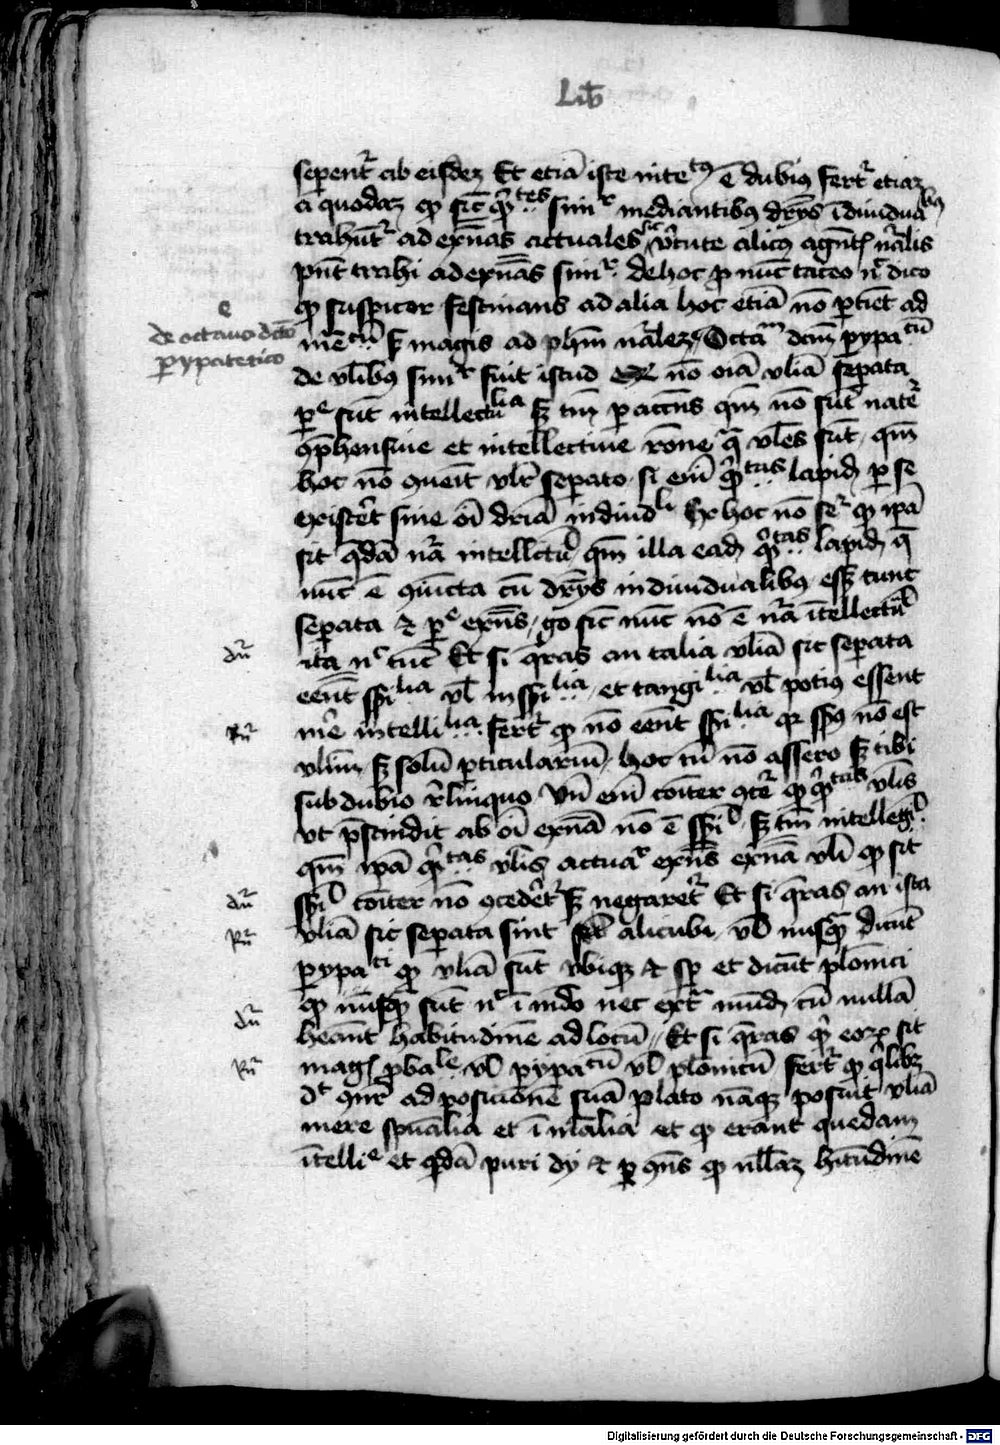 Lib
seperentr ab eisdez Et etiā iste inte^tus ē dubius fertr etiaz
a quodaz qp sic̄ q̄^tes simr mediantibus drys īdiuidua^bus
trahūtr ad exn̄as actuales sic v̄tute alicus agn̄t nrālis
pn̄t trahi ad exn̄as simr de hoc p nūc taceo nc dico
qp suspicor festinans ad alia hoc etiā nō ptiet ad
me^cū sz magis ad phm nrālez Octām dcm pypa^cū
de vlibus simr fuit istud nō oīa vliā seperata
pe sūt intellectu^lia sz tm̄ p accn̄s qm̄ nō sūt nate
qphensiue et intellectiue rōne q̄ vles sūt qm̄
hoc nō quenit vlr sepato si em̄ q̄^tas lapidis p se
existeret sine oī dr̄iā indiud^li Ex hoc nō ser qp ipā
sit q̄dā nrā intellectu^l qm̄ illa eadz q̄^tas lapidis q̄
nūc ē quicta cū drys indiuidualibus essz tunc
seperata & pe exn̄s go sic nūc nō ē nrā ītellectu^l
ita nc tūc Et si q̄ras an talia vliā sic seperata
eēnt spi^lia vl inspi^lia et tangi^lia vl potius essent
mē intelli^lia fertr qp nō eēnt spi^lia qr sps nō est
vliū sz solū pticulariū hoc tn̄ nō assero sz tibi
sub dubio rlinquo Vn̄ em̄ cōiter 9cer qp q̄^tas vlis
vt pscindit ab oī exn̄ā nō ē spi^l sz tm̄ intelleg^l
qm̄ ipā q̄^tas vlis actuar exn̄s exn̄ā vli qp sit
spi^l cōiter nō 9cederetr sz negaretr Et si q̄ras an ista
vliā sic seperata sint alicubi vl nusq̄ dicūt
pypa^ci qp vliā sūt vbiqz & sp et dicūt plonici
qp nusq̄ sūt nc ī mdo nec extr mūdz cū nullā
heānt habitudinē ad locū Et si q̄ras q̄ eorz sit
mag pba^le vl pypa^cū vl plonicū fertr qp q̄libz
dt qnr ad posicionē suā plato nāqz posuit vliā
mere spūalia et īmālia et qp erant quedam
ītelli^e et q̄dā puri dij & p qn̄s qp nllaz hitudinē
de octauo dcto
pypatetico
du
Rr
du
Rr
du
Rr
Digitalisierung gefördert durch die Deutsche Forschungsgemeinschaft - DFG